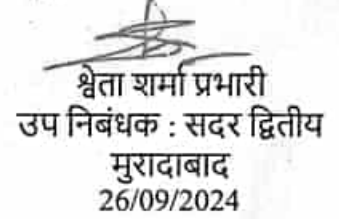 श्वेता शर्मा प्रभारी
उप निबंधक : सदर द्वितीय
मुरादाबाद
26/09/2024